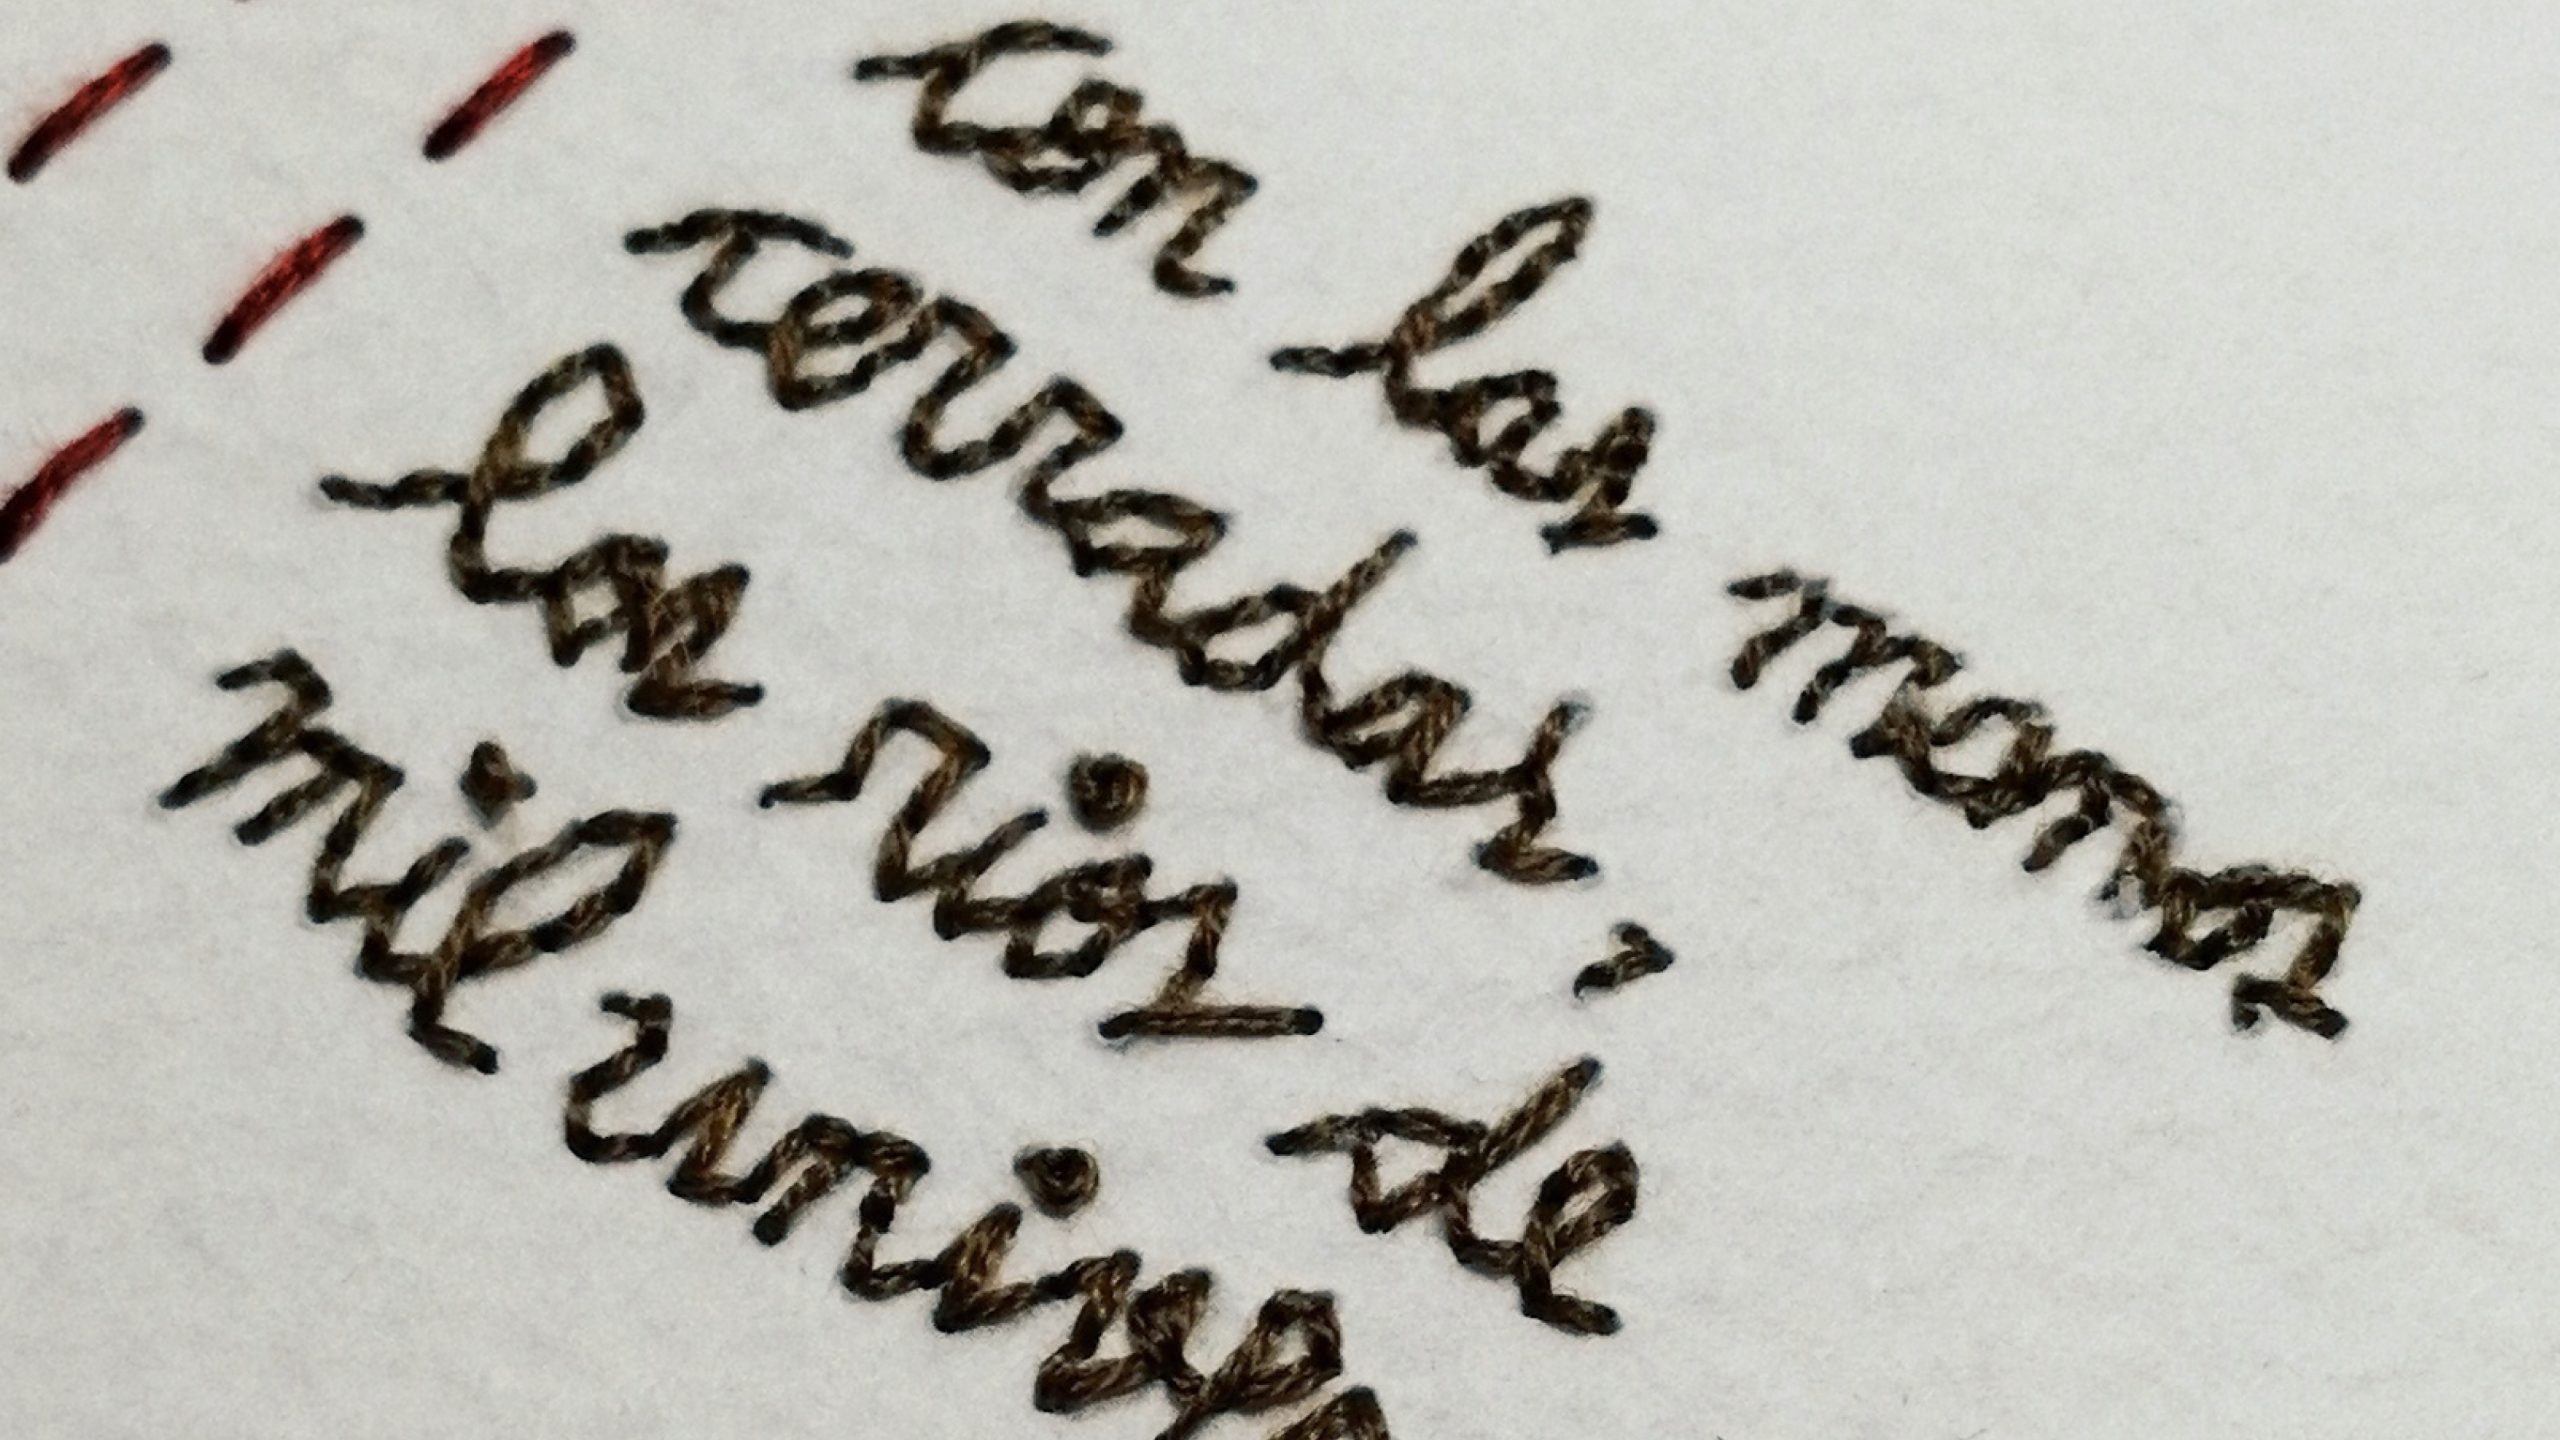 con las manos
cerradas,
los rios de
mil